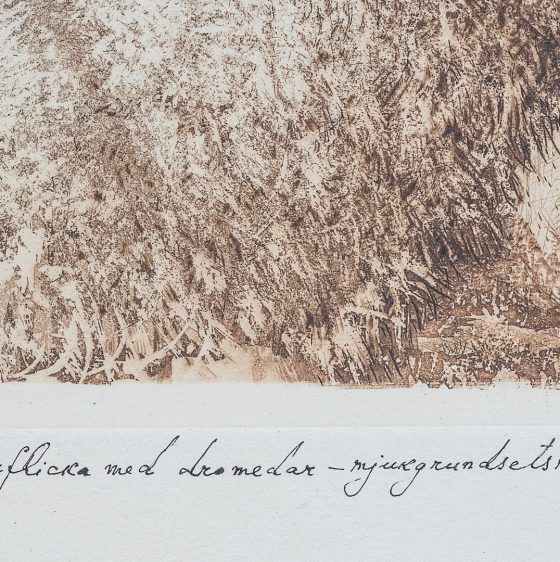 flicka med dromedar – mjukgrundsets